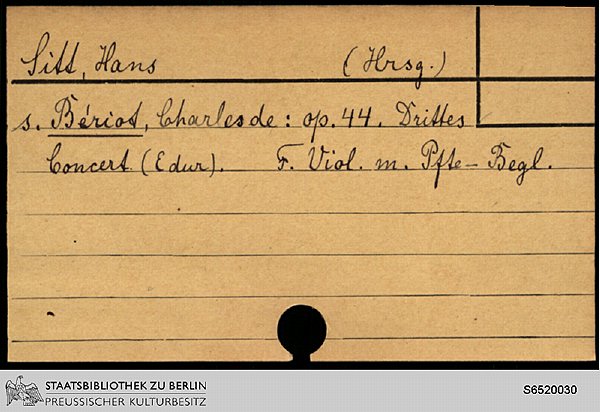 Sitt, Hans (Hrsg.)
s. Bériot, Charles de: op. 44. Drittes
Concert (Edur). F. Viol. m. Pfte-Begl.
STAATSBIBLIOTHEK ZU BERLIN
PREUSSISCHER KULTURBESITZ
S6520030